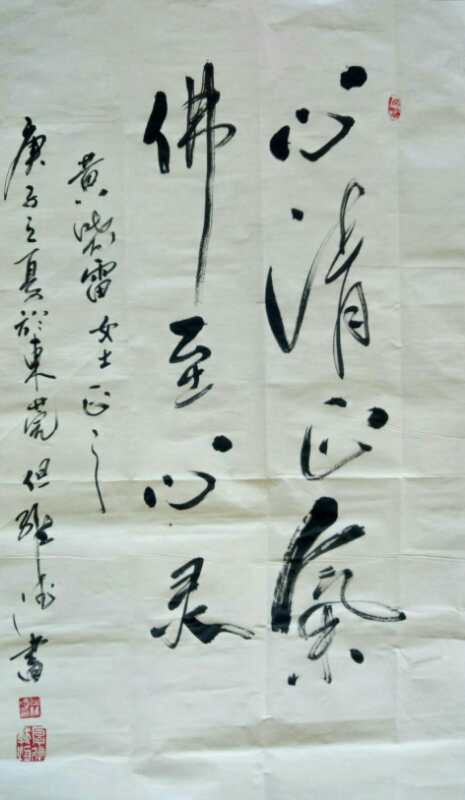 心清正氣
佛至心灵
黄 雷女士正之
庚子之夏於東莞但 書